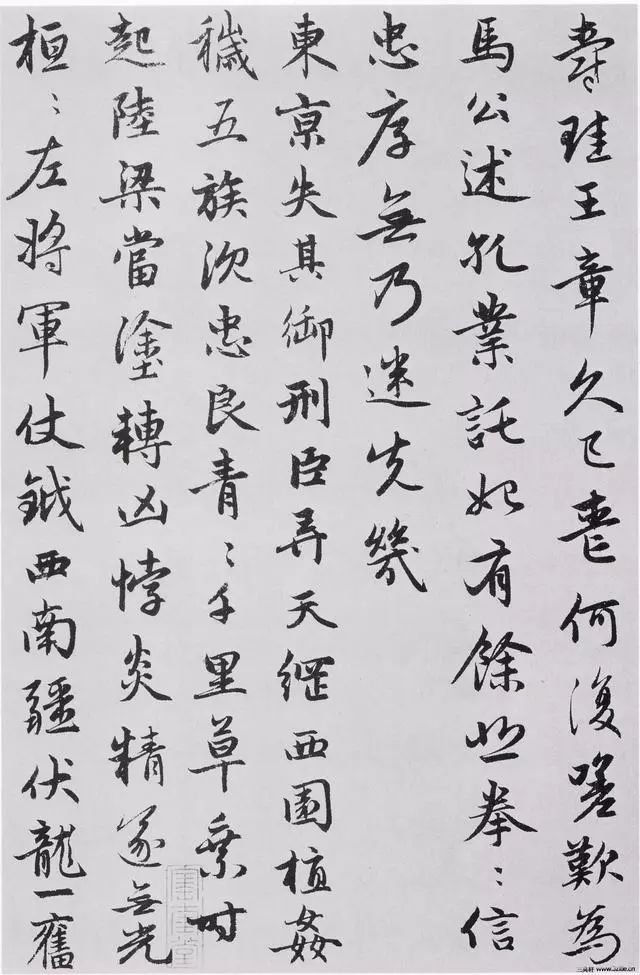 爵珪王章久已喪何復嗟歎為
馬公述孔業託始有餘悲拳〻信
忠厚無乃迷先幾
東京失其御刑臣弄天綱西園植姦
穢五族沉忠良青〻千里草乘時
起陸梁當塗轉凶悖炎精遂無光
桓〻左將軍仗鉞西南疆伏龍一奮